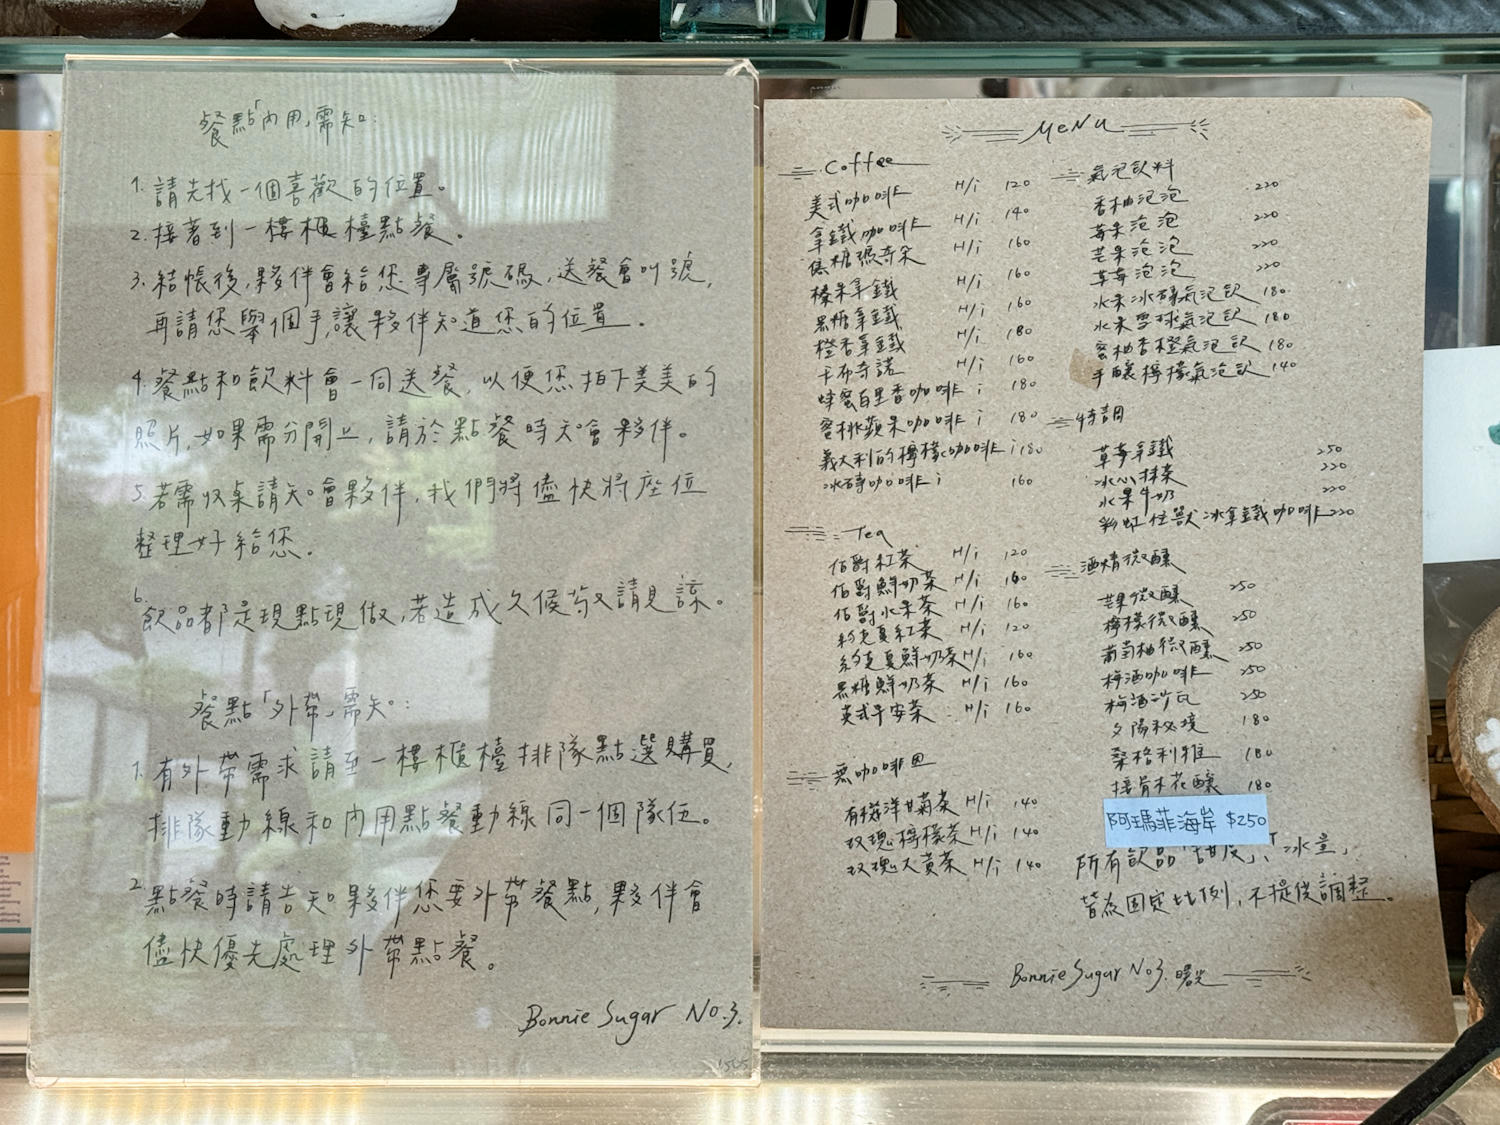 餐點「內用」需知：
1. 請先找一個喜歡的位置。
2. 接著到一樓櫃檯點餐。
3. 結帳後，夥伴會給您專屬號碼，送餐會叫號，
再請您舉個手，讓夥伴知道您的位置。
4. 餐點和飲料會一同送餐，以便您拍下美美的
照片，如果需分開上，請於點餐時知會夥伴。
5. 若需收桌請知會夥伴，我們將儘快將座位
整理好給您。
6. 飲品都是現點現做，若造成久候敬請見諒。
餐點「外帶」需知：
1. 有外帶需求請至一樓櫃檯排隊點選購買，
排隊動線和內用點餐動線同一個隊伍。
2. 點餐時請告知夥伴您要外帶餐點，夥伴會
儘快優先處理外帶點餐。
Bonnie Sugar No.3.
MeNu
Coffee
美式咖啡 H/i 120
拿鐵咖啡 H/i 140
焦糖瑪奇朵 H/i 160
榛果拿鐵 H/i 160
黑糖拿鐵 H/i 160
橙香拿鐵 H/i 180
卡布奇諾 H/i 160
蜂蜜百里香咖啡 i 180
蜜桃蘋果咖啡 i 180
義大利的檸檬咖啡 i 180
冰磚咖啡 i 160
Tea
伯爵紅茶 H/i 120
伯爵鮮奶茶 H/i 160
伯爵水果茶 H/i 160
約克夏紅茶 H/i 120
約克夏鮮奶茶 H/i 160
黑糖鮮奶茶 H/i 160
英式早安茶 H/i 160
無咖啡因
有機洋甘菊茶 H/i 140
玫瑰檸檬茶 H/i 140
玫瑰大黃茶 H/i 140
氣泡飲料
香柚泡泡 220
莓果泡泡 220
芒果泡泡 220
草莓泡泡 220
水果冰磚氣泡飲 180
水果雪球氣泡飲 180
蜜柚香橙氣泡飲 180
手釀檸檬氣泡飲 140
特調
草莓拿鐵 250
冰心抹茶 220
水果牛奶 220
彩虹怪獸冰拿鐵咖啡 220
酒精微醺
芒果微醺 250
檸檬微醺 250
葡萄柚微醺 250
梅酒咖啡 250
梅酒沙瓦 250
夕陽秘境 180
桑格利雅 180
接骨木花釀 180
阿瑪菲海岸 $250
所有飲品「甜度」、「冰量」
皆為固定比例，不提供調整。
Bonnie Sugar No3. 曙光